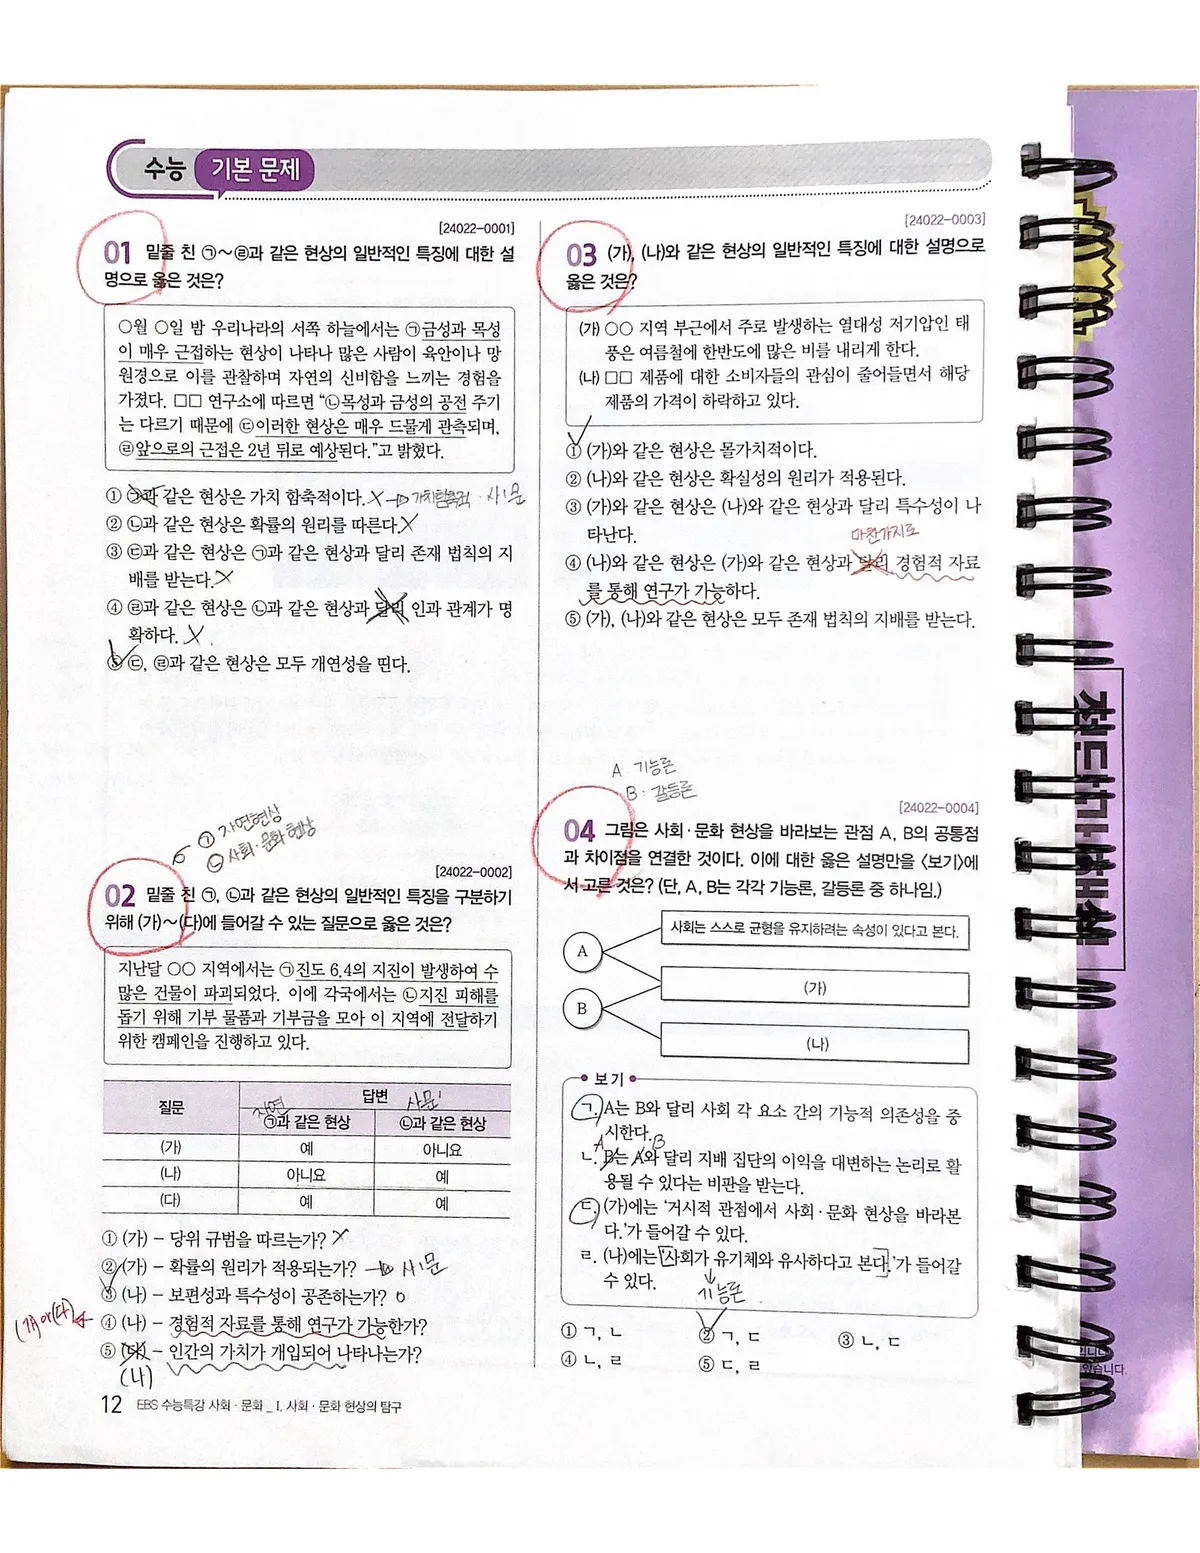 수능 기본 문제
[24022-0001]
01 밑줄 친 ㉠~㉣과 같은 현상의 일반적인 특징에 대한 설
명으로 옳은 것은?
○월 ○일 밤 우리나라의 서쪽 하늘에서는 ㉠금성과 목성
이 매우 근접하는 현상이 나타나 많은 사람이 육안이나 망
원경으로 이를 관찰하며 자연의 신비함을 느끼는 경험을
가졌다. □□ 연구소에 따르면 “㉡목성과 금성의 공전 주기
는 다르기 때문에 ㉢이러한 현상은 매우 드물게 관측되며,
㉣앞으로의 근접은 2년 뒤로 예상된다.”고 밝혔다.
① ㉠과 같은 현상은 가치 함축적이다. X → 가치함축적 · 사·문
② ㉡과 같은 현상은 확률의 원리를 따른다. X
③ ㉢과 같은 현상은 ㉠과 같은 현상과 달리 존재 법칙의 지
배를 받는다. X
④ ㉣과 같은 현상은 ㉡과 같은 현상과 달리 인과 관계가 명
확하다. X
⑤ ㉢, ㉣과 같은 현상은 모두 개연성을 띤다.
㉠ 자연현상
㉡ 사회·문화 현상
[24022-0002]
02 밑줄 친 ㉠, ㉡과 같은 현상의 일반적인 특징을 구분하기
위해 (가)~(다)에 들어갈 수 있는 질문으로 옳은 것은?
지난달 ○○ 지역에서는 ㉠진도 6.4의 지진이 발생하여 수
많은 건물이 파괴되었다. 이에 각국에서는 ㉡지진 피해를
돕기 위해 기부 물품과 기부금을 모아 이 지역에 전달하기
위한 캠페인을 진행하고 있다.
질문 답변
자연 사문
㉠과 같은 현상 ㉡과 같은 현상
(가) 예 아니요
(나) 아니요 예
(다) 예 예
① (가) – 당위 규범을 따르는가? X
② (가) – 확률의 원리가 적용되는가? → 사·문
③ (나) – 보편성과 특수성이 공존하는가? O
(가) or (다) ④ (나) – 경험적 자료를 통해 연구가 가능한가?
⑤ (다) – 인간의 가치가 개입되어 나타나는가?
(나)
12 EBS 수능특강 사회·문화 _ Ⅰ. 사회·문화 현상의 탐구
[24022-0003]
03 (가), (나)와 같은 현상의 일반적인 특징에 대한 설명으로
옳은 것은?
(가) ○○ 지역 부근에서 주로 발생하는 열대성 저기압인 태
풍은 여름철에 한반도에 많은 비를 내리게 한다.
(나) □□ 제품에 대한 소비자들의 관심이 줄어들면서 해당
제품의 가격이 하락하고 있다.
① (가)와 같은 현상은 몰가치적이다.
② (나)와 같은 현상은 확실성의 원리가 적용된다.
③ (가)와 같은 현상은 (나)와 같은 현상과 달리 특수성이 나
타난다.
마찬가지로
④ (나)와 같은 현상은 (가)와 같은 현상과 달리 경험적 자료
를 통해 연구가 가능하다.
⑤ (가), (나)와 같은 현상은 모두 존재 법칙의 지배를 받는다.
A : 기능론
B : 갈등론
[24022-0004]
04 그림은 사회·문화 현상을 바라보는 관점 A, B의 공통점
과 차이점을 연결한 것이다. 이에 대한 옳은 설명만을 〈보기〉에
서 고른 것은? (단, A, B는 각각 기능론, 갈등론 중 하나임.)
사회는 스스로 균형을 유지하려는 속성이 있다고 본다.
A
(가)
B
(나)
보기
ㄱ. A는 B와 달리 사회 각 요소 간의 기능적 의존성을 중
시한다.
A B
ㄴ. B는 A와 달리 지배 집단의 이익을 대변하는 논리로 활
용될 수 있다는 비판을 받는다.
ㄷ. (가)에는 ‘거시적 관점에서 사회·문화 현상을 바라본
다.’가 들어갈 수 있다.
ㄹ. (나)에는 ‘사회가 유기체와 유사하다고 본다.’가 들어갈
수 있다.
기능론
① ㄱ, ㄴ ② ㄱ, ㄷ ③ ㄴ, ㄷ
④ ㄴ, ㄹ ⑤ ㄷ, ㄹ